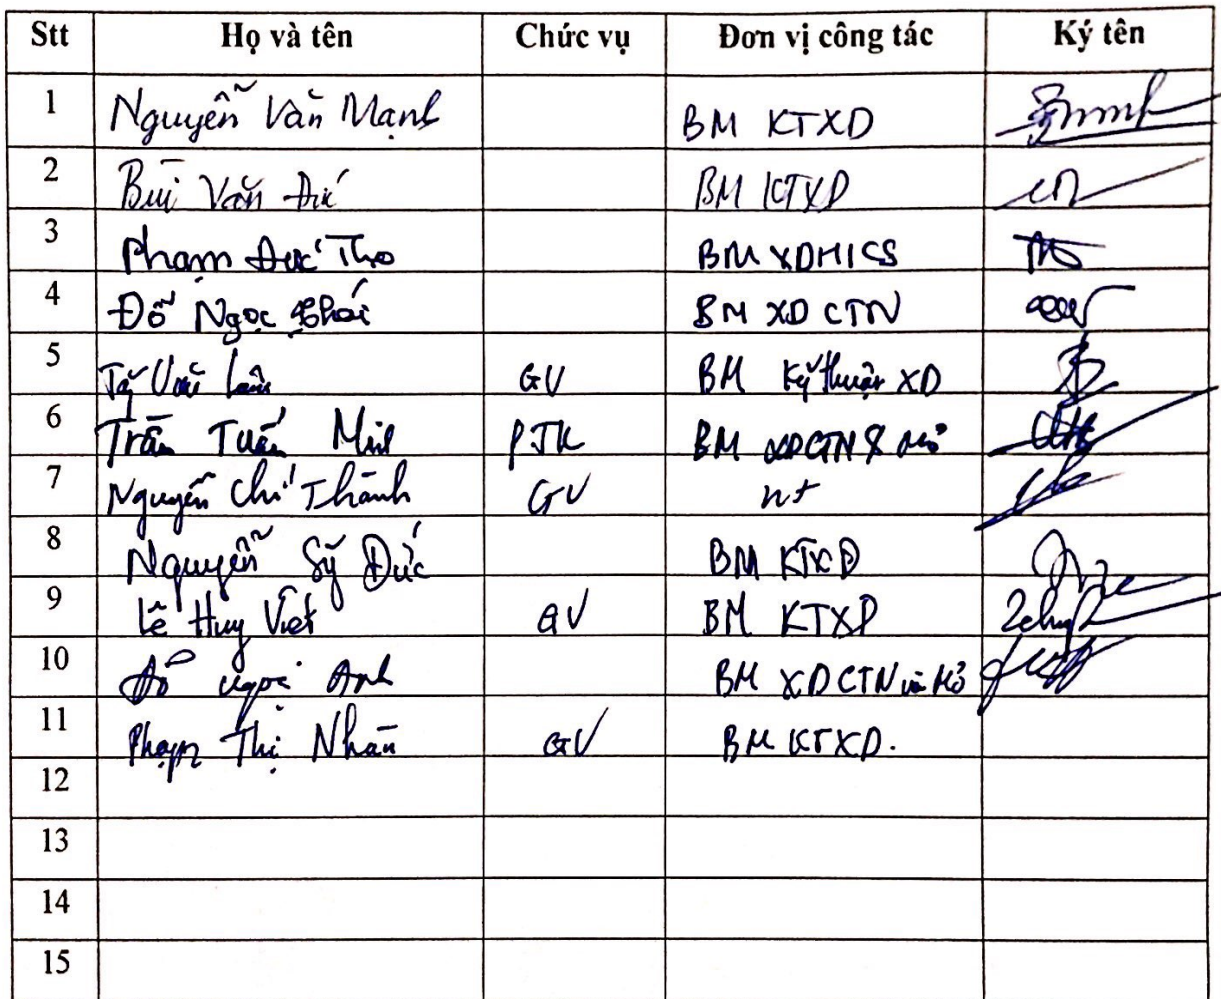 Stt Họ và tên Chức vụ Đơn vị công tác Ký tên
1 Nguyễn Văn Mạnh BM KTXD
2 Bùi Văn Đức BM KTXD
3 Phạm Đức Thọ BM XDHICS
4 Đỗ Ngọc Thái BM XD CTN
5 Tạ Văn Lâm GV BM Kỹ thuật XD
6 Trần Tuấn Minh PTK BM XDCTN & Mỏ
7 Nguyễn Chí Thành GV nt
8 Nguyễn Sỹ Đức BM KTXD
9 Lê Huy Việt GV BM KTXD
10 Đỗ Ngọc Anh BM XDCTN và Mỏ
11 Phạm Thị Nhàn GV BM KTXD.
12
13
14
15